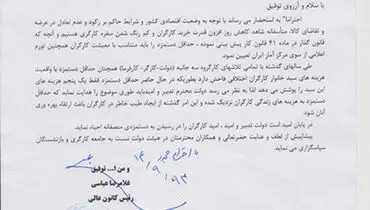 با سلام و آرزوی توفیق
احتراما" به استحضار می رساند با توجه به وضعیت اقتصادی کشور و شرایط حاکم بر رکود و عدم تعادل در عرضه
و تقاضای کالا، متأسفانه شاهد کاهش روز افزون قدرت خرید کارگران و کم رنگ شدن سفره کارگری هستیم و آنچه که
قانون گذار در ماده ۴۱ قانون کار پیش بینی نموده ، حداقل دستمزد را باید متناسب با معیشت کارگران همچنین تورم
اعلامی از سوی مرکز آمار ایران تعیین نمود.
طی سالهای گذشته با تمامی تلاشهای گروه سه جانبه (دولت-کارگر- کارفرما) همچنان حداقل دستمزد با واقعیت
هزینه های سبد خانوار کارگران اختلافی فاحش دارد بطوریکه در حال حاضر حداقل دستمزد فقط یک پنجم هزینه های
این سبد را پوشش می دهد لذا به نظر می رسد دولت محترم تدبیر و امیدباید طوری موضوع را هدایت نماید که حداقل
دستمزد به هزینه های زندگی کارگران نزدیک شده و این امر گذشته از ایجاد طیب خاطر در کارگران باعث ارتقاء بهره وری
آنان شود.
در پایان امید است دولت تدبیر و امید ، امید کارگران را در رسیدن به دستمزدی منصفانه احیاء نماید.
پیشاپیش از لطف و عنایت حضرتعالی و همکاران محترمتان در هیئت دولت نسبت به جامعه کارگری و بازنشستگان
سپاسگزاری می نماید.
و من ا... توفیق
غلامرضا عباسی
رئیس کانون عالی
۹۳/۹/۱۶